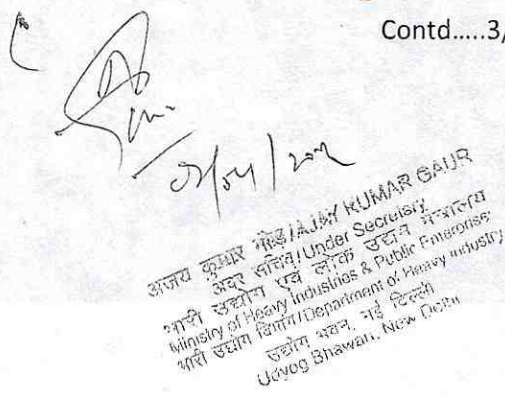 Contd.....3/
अजय कुमार गौड़/AJAY KUMAR GAUR
अवर सचिव/Under Secretary
भारी उद्योग एवं लोक उद्यम मंत्रालय
Ministry of Heavy Industries & Public Enterprises
भारी उद्योग विभाग/Department of Heavy Industry
उद्योग भवन, नई दिल्ली
Udyog Bhawan, New Delhi